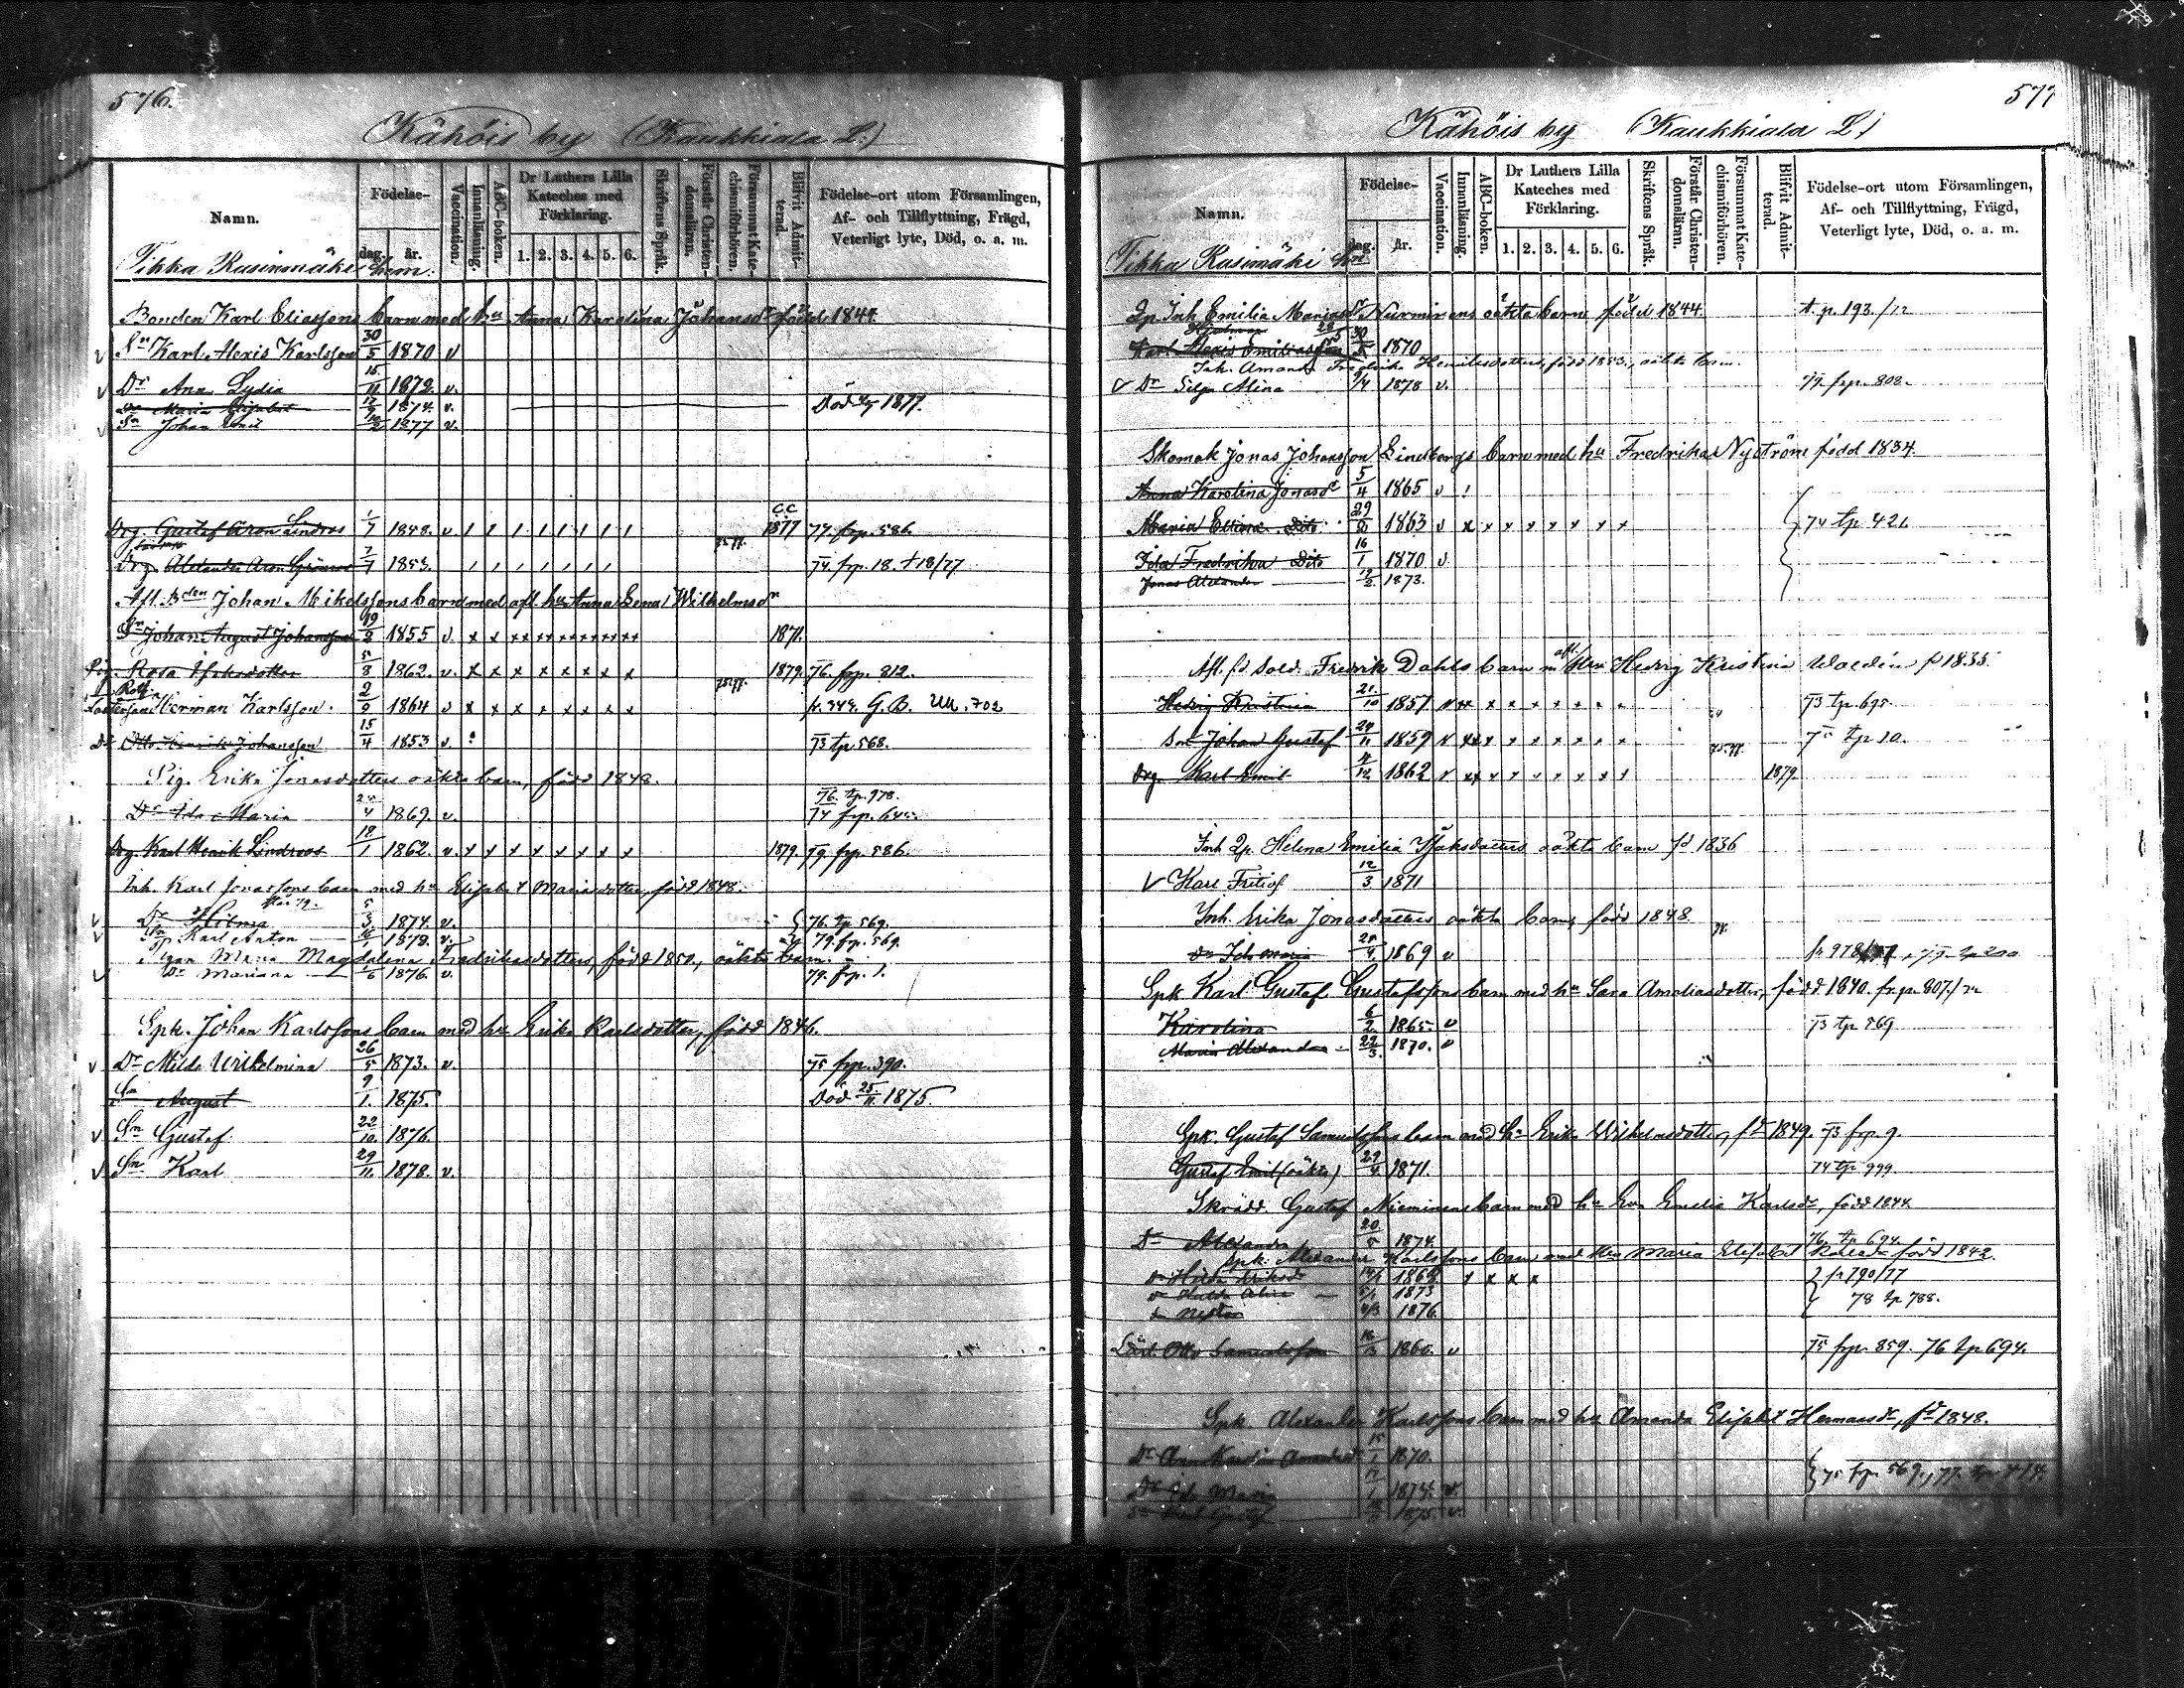 576.
Kähöis by (Kaukkiala L.)
Namn.
Födelse-
dag.
år.
Vaccination.
Innanläsning.
ABC-boken.
Dr Luthers Lilla Kateches med Förklaring.
1. 2. 3. 4. 5. 6.
Skriftens Språk.
Förstår Christendomsläran.
Försummat Katechismiförhören.
Blifvit Admitterad.
Födelse-ort utom Församlingen, Af- och Tillflyttning, Frägd, Veterligt lyte, Död, o. a. m.
Tikka Rusinmäki hem.
Bonden Karl Eliassons barn med hu Anna Karolina Johansdr född 1844.
v Sn Karl Alexis Karlsson 30/5 1870 v
v Dr Ana Lydia 1872. v.
Dr Maria Elisabet 1874. v. Död 1877.
v Sn Johan Emil 1877 v.
Drg. Gustaf Aron Lindros 1/7 1848. v. 1877 77. frp. 586.
Drg. Alexander Aron 7/7 1853. 74. frp. 18. † 18/77
Afl. Bden Johan Mikelssons barn med afl. hu Anna Lena Wilhelmsdr
Sn Johan August Johansson 19/2 1855 v. x x 1871.
Pig. Rosa 5/8 1862. v. x x x x x x x x 1879. 76. frp. 812.
Herman Karlsson. 2/9 1864 v x x x x x x x x fr. 349. G.B. 702
Otto Henrik Johansson 15/4 1853 v. 73 tp 568.
Pig. Erika Jonasdotters oäkta barn, född 1848.
Dr Ida Maria 1869. v. 76. tp. 978.
74 frp.
Drg. Karl Henrik Lindroos 18/1 1862. v. x x x x x x x x 1879. 79. frp. 586.
Inh. Karl Jonassons barn med hu Elisabet Mariasdotter, född 1848.
v Dr Hilma 5/3 1874. v. 76. tp. 569.
v Sn Karl Anton 1878. v. 79. frp. 569.
Pigan Maria Magdalena Fredriksdotters, född 1850., oäkta barn.
v Dr Mariana 1876. v. 79. frp. 1.
Spk. Johan Karlssons barn med hu Erika Karlsdotter, född 1846.
v Dr Milda Wilhelmina 26/5 1873. v. 75 frp. 390.
Sn August 9/1. 1875. Död 25/11 1875.
v Sn Gustaf 22/10 1876.
v Sn Karl 29/11. 1878. v.
577
Kähöis by (Kaukkiala L.)
Namn.
Födelse-
dag.
År.
Vaccination.
Innanläsning.
ABC-boken.
Dr Luthers Lilla Kateches med Förklaring.
1. 2. 3. 4. 5. 6.
Skriftens Språk.
Förstår Christendomsläran.
Försummat Katechismiförhören.
Blifvit Admitterad.
Födelse-ort utom Församlingen, Af- och Tillflyttning, Frägd, Veterligt lyte, Död, o. a. m.
Tikka Rusimäki hem
Qp Inh Emilia Mariasdr Nurminens oäkta barn född 1844. t. p. 193./72
Karl Alexis Emiliasson 1870
Inh. Amanda Fredrika Henriksdotters, född 1853., oäkta barn.
v Dr Silja Alina 9/4 1878 v. 79. frp. 808.
Skomak Jonas Johansson Lindbergs barn med hu Fredrika Nyström född 1834.
Anna Karolina Jonasdr 5/4 1865 v
Maria Elina Dito 1863 v x x x x x x x x 74 tp. 421.
Ida Fredrika Dito 16/1 1870 v
Jonas Alexander 1873.
Afl. fd Sold. Fredrik Dahls barn m afl. Hu Hedvig Kristina Waldén fd 1835.
Hedvig Kristina 21/10 1857 73 tp 695.
Johan Gustaf 24/11 1859 tp 10.
Drg. Karl Emil 1862 1879.
Inh Qp. Helena Emilia Isaksdotters oäkta barn fd 1836
v Karl Fritiof 12/3 1871
Inh. Erika Jonasdotters oäkta barn, född 1848.
Dr Ida Maria 25/4 1869 v fr 978
Spk Karl Gustaf Gustafssons barn med hu Sara Amaliasdotter, född 1840. fr. p. 807./
Karolina 6/2 1865. v 73 tp 869
Maria Alexandra 22/3. 1870. v
Spk. Gustaf Samuelssons barn med hu Erika Wilhelmsdotter, fd 1849. 73 frp 9.
Gustaf Emil (oäkta) 29/4 1871. 74 tp 999.
Skrädd. Gustaf Nieminens barn med hu Eva Emelia Karlsdr, född 1844.
Dr Alexandra 20/5 1874. 76. tp 694.
Spk. Alexander Karlssons barn med Hu Maria Elisabet född 1842.
Hilda 186 fr 790/77
Hulda Alina 1873 78 tp 788.
Nestor 1876.
Lärl. Otto Samuelsson 1860. v 75 frp. 859. 76 tp 694.
Spk. Alexander Karlssons barn med hu Amanda Elisabet Hermansdr, fd 1848.
Dr 1870.
75 frp 569., 77. tp 414.
Dr Ida Maria 1874. v.
Sn Karl Gustaf 1875. v.